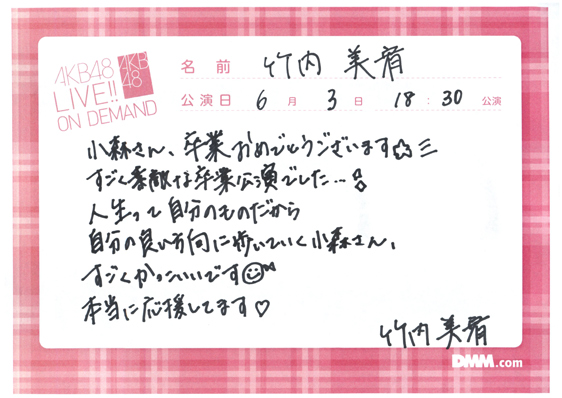 AKB48
LIVE!!
ON DEMAND
AKB
48
名前 竹内 美宥
公演日 6月 3日 18:30 公演
小森さん、卒業おめでとうございます☆彡
すごく素敵な卒業公演でした…
人生って自分のものだから
自分の良い方向に歩いていく小森さん、
すごくかっこいいです
本当に応援してます♡
竹内美宥
DMM.com